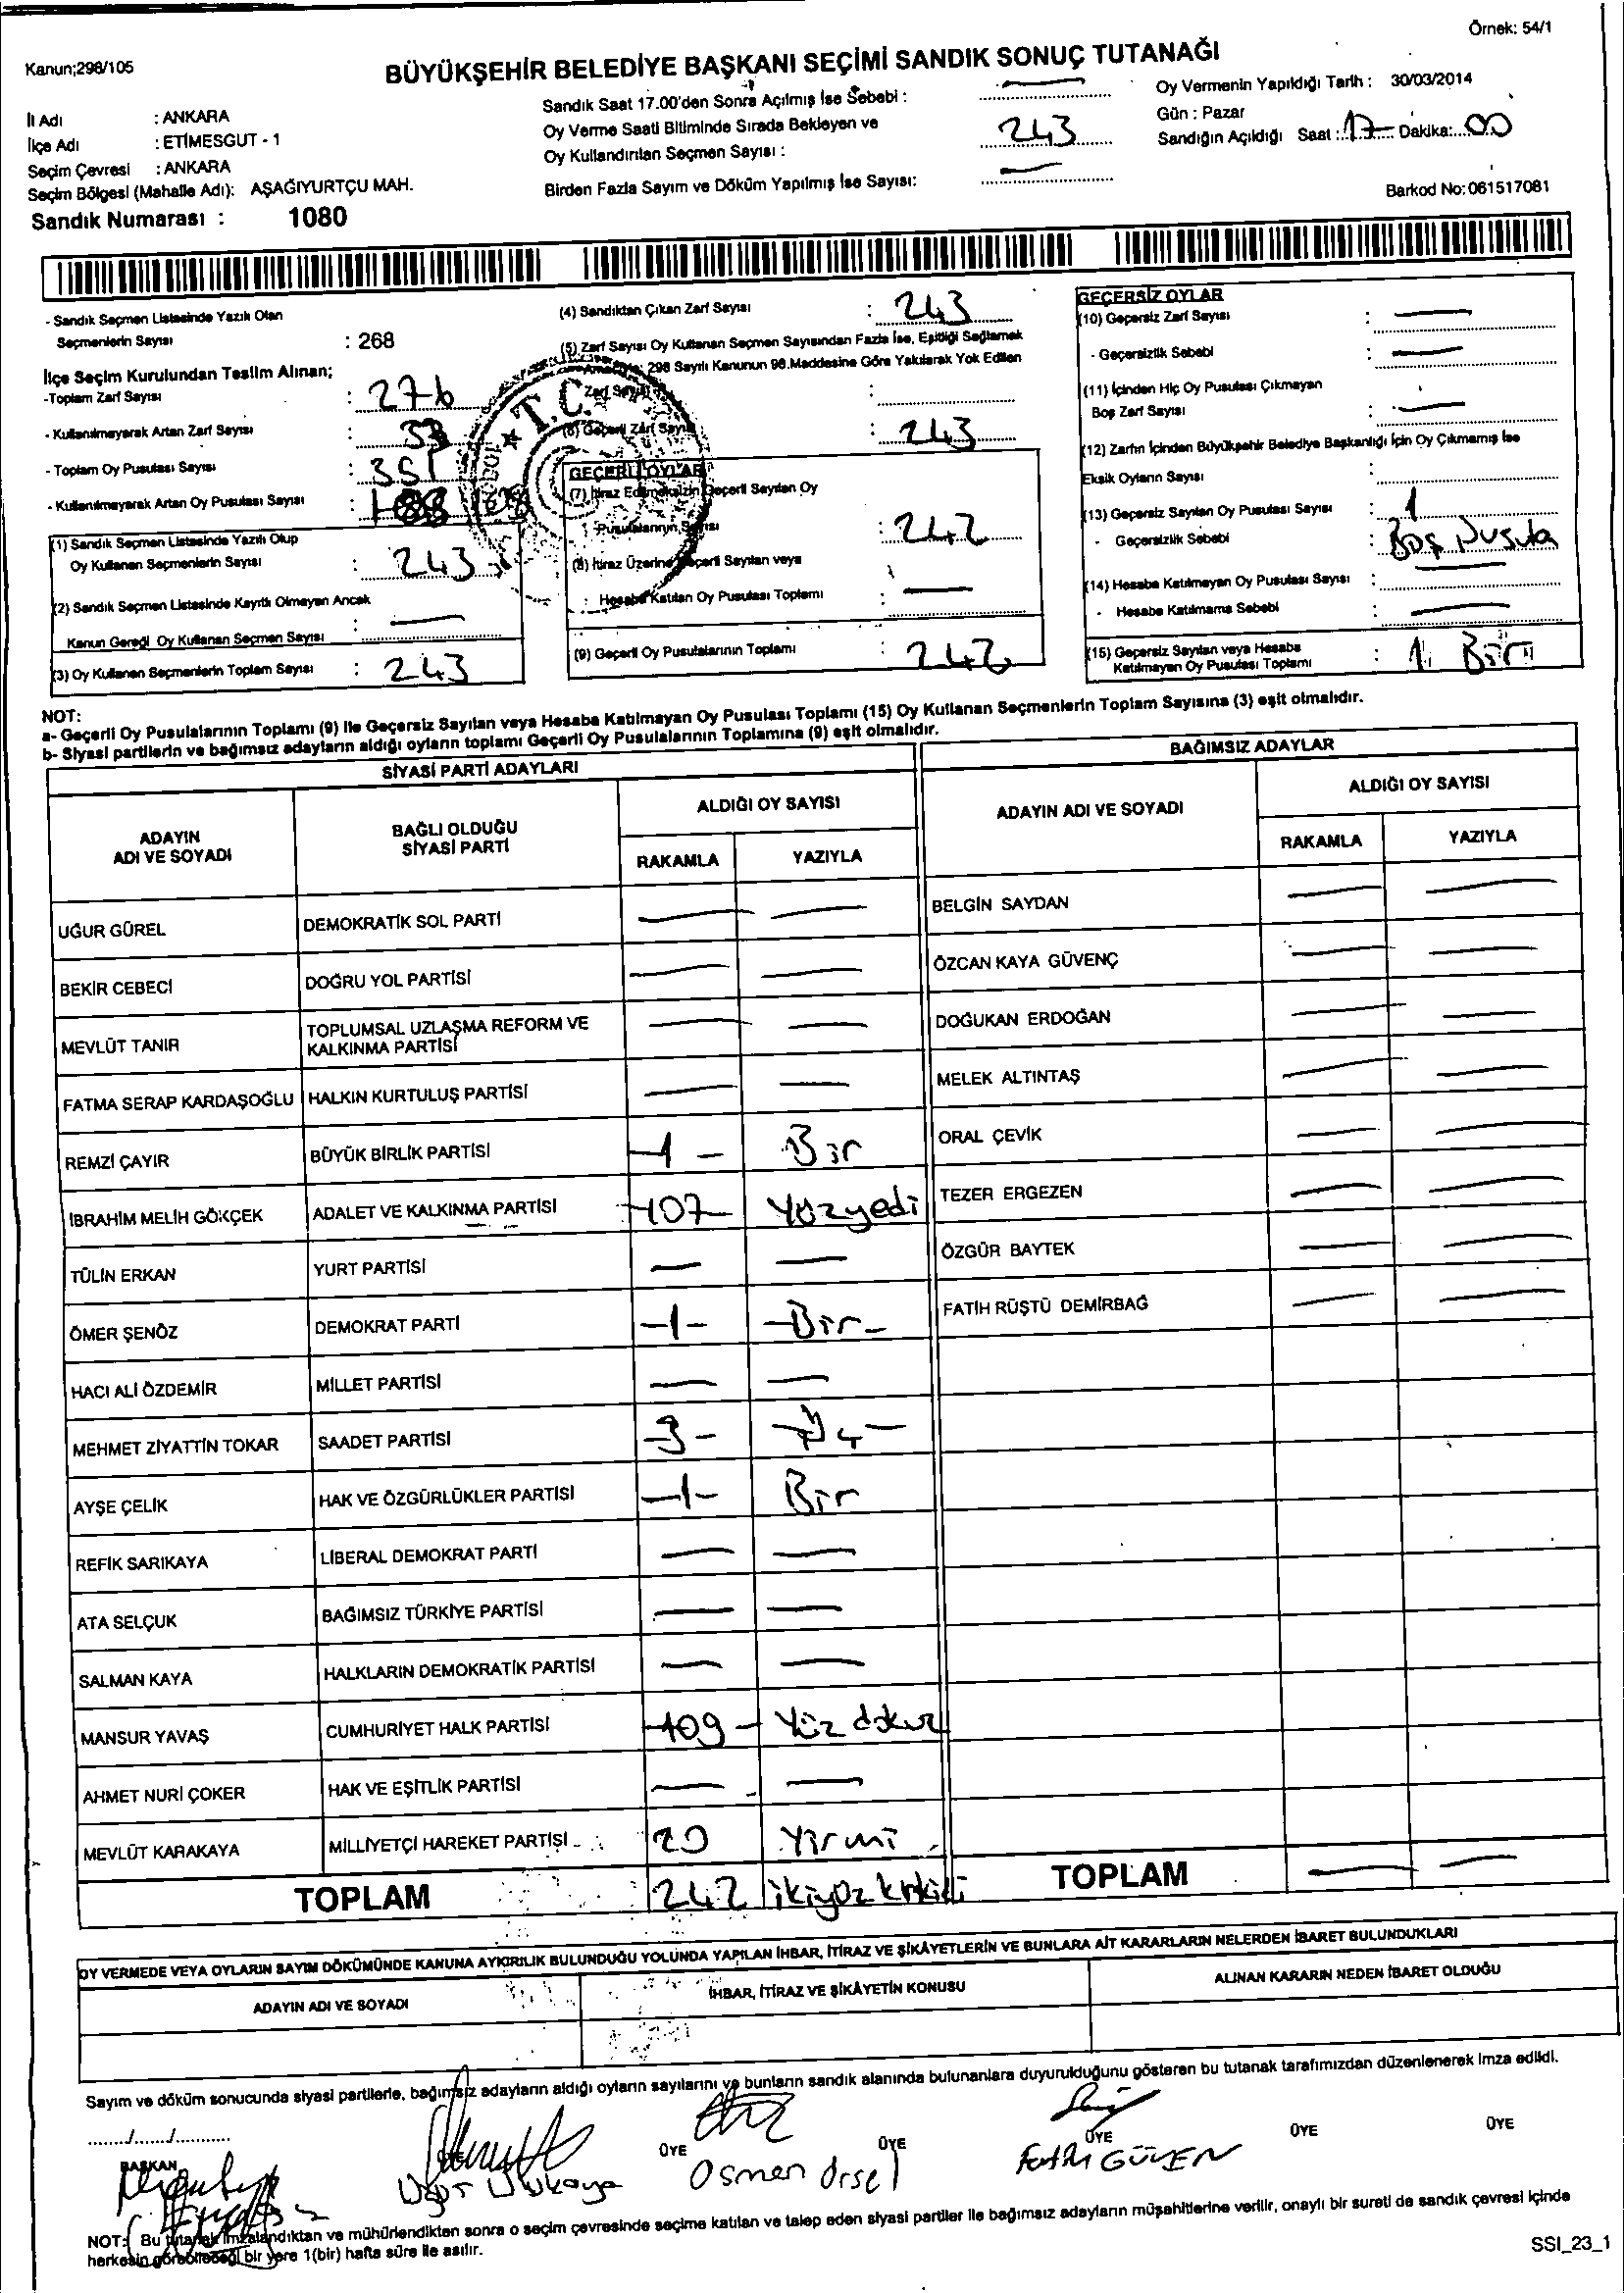 Örnek: 54/1
Kanun;298/105
BÜYÜKŞEHİR BELEDİYE BAŞKANI SEÇİMİ SANDIK SONUÇ TUTANAĞI
İl Adı : ANKARA
İlçe Adı : ETİMESGUT - 1
Seçim Çevresi : ANKARA
Seçim Bölgesi (Mahalle Adı): AŞAĞIYURTÇU MAH.
Sandık Numarası : 1080
Sandık Saat 17.00'den Sonra Açılmış İse Sebebi :
Oy Verme Saati Bitiminde Sırada Bekleyen ve
Oy Kullandırılan Seçmen Sayısı : 243
Birden Fazla Sayım ve Döküm Yapılmış İse Sayısı:
Oy Vermenin Yapıldığı Tarih : 30/03/2014
Gün : Pazar
Sandığın Açıldığı Saat : 17 Dakika: 00
Barkod No: 061517081
- Sandık Seçmen Listesinde Yazılı Olan
Seçmenlerin Sayısı : 268
İlçe Seçim Kurulundan Teslim Alınan;
-Toplam Zarf Sayısı : 276
- Kullanılmayarak Artan Zarf Sayısı : 33
- Toplam Oy Pusulası Sayısı : 351
- Kullanılmayarak Artan Oy Pusulası Sayısı :
(1) Sandık Seçmen Listesinde Yazılı Olup
Oy Kullanan Seçmenlerin Sayısı : 243
(2) Sandık Seçmen Listesinde Kayıtlı Olmayan Ancak
Kanun Gereği Oy Kullanan Seçmen Sayısı :
(3) Oy Kullanan Seçmenlerin Toplam Sayısı : 243
(4) Sandıktan Çıkan Zarf Sayısı : 243
(5) Zarf Sayısı Oy Kullanan Seçmen Sayısından Fazla İse, Eşitliği Sağlamak
Amacıyla; 298 Sayılı Kanunun 98.Maddesine Göre Yakılarak Yok Edilen
Zarf Sayısı :
T.C.
(6) Geçerli Zarf Sayısı : 243
GEÇERLİ OYLAR
(7) İtiraz Edilmeksizin Geçerli Sayılan Oy
Pusulalarının Sayısı : 242
(8) İtiraz Üzerine Geçerli Sayılan veya
Hesaba Katılan Oy Pusulası Toplamı :
(9) Geçerli Oy Pusulalarının Toplamı : 242
GEÇERSİZ OYLAR
(10) Geçersiz Zarf Sayısı :
- Geçersizlik Sebebi :
(11) İçinden Hiç Oy Pusulası Çıkmayan
Boş Zarf Sayısı :
(12) Zarfın İçinden Büyükşehir Belediye Başkanlığı İçin Oy Çıkmamış İse
Eksik Oyların Sayısı :
(13) Geçersiz Sayılan Oy Pusulası Sayısı : 1
- Geçersizlik Sebebi : Boş pusula
(14) Hesaba Katılmayan Oy Pusulası Sayısı :
- Hesaba Katılmama Sebebi :
(15) Geçersiz Sayılan veya Hesaba
Katılmayan Oy Pusulası Toplamı : 1 Bir
NOT:
a- Geçerli Oy Pusulalarının Toplamı (9) ile Geçersiz Sayılan veya Hesaba Katılmayan Oy Pusulası Toplamı (15) Oy Kullanan Seçmenlerin Toplam Sayısına (3) eşit olmalıdır.
b- Siyasi partilerin ve bağımsız adayların aldığı oyların toplamı Geçerli Oy Pusulalarının Toplamına (9) eşit olmalıdır.
SİYASİ PARTİ ADAYLARI
ADAYIN
ADI VE SOYADI
BAĞLI OLDUĞU
SİYASİ PARTİ
ALDIĞI OY SAYISI
RAKAMLA YAZIYLA
UĞUR GÜREL DEMOKRATİK SOL PARTİ
BEKİR CEBECİ DOĞRU YOL PARTİSİ
MEVLÜT TANIR TOPLUMSAL UZLAŞMA REFORM VE
KALKINMA PARTİSİ
FATMA SERAP KARDAŞOĞLU HALKIN KURTULUŞ PARTİSİ
REMZİ ÇAYIR BÜYÜK BİRLİK PARTİSİ -1- Bir
İBRAHİM MELİH GÖKÇEK ADALET VE KALKINMA PARTİSİ -107- Yüzyedi
TÜLİN ERKAN YURT PARTİSİ
ÖMER ŞENÖZ DEMOKRAT PARTİ -1- -Bir-
HACI ALİ ÖZDEMİR MİLLET PARTİSİ
MEHMET ZİYATTİN TOKAR SAADET PARTİSİ -3-
AYŞE ÇELİK HAK VE ÖZGÜRLÜKLER PARTİSİ -1- Bir
REFİK SARIKAYA LİBERAL DEMOKRAT PARTİ
ATA SELÇUK BAĞIMSIZ TÜRKİYE PARTİSİ
SALMAN KAYA HALKLARIN DEMOKRATİK PARTİSİ
MANSUR YAVAŞ CUMHURİYET HALK PARTİSİ -109- Yüz dokuz
AHMET NURİ ÇOKER HAK VE EŞİTLİK PARTİSİ
MEVLÜT KARAKAYA MİLLİYETÇİ HAREKET PARTİSİ 20 Yirmi
TOPLAM 242 ikiyüz kırkiki
BAĞIMSIZ ADAYLAR
ADAYIN ADI VE SOYADI
ALDIĞI OY SAYISI
RAKAMLA YAZIYLA
BELGİN SAYDAN
ÖZCAN KAYA GÜVENÇ
DOĞUKAN ERDOĞAN
MELEK ALTINTAŞ
ORAL ÇEVİK
TEZER ERGEZEN
ÖZGÜR BAYTEK
FATİH RÜŞTÜ DEMİRBAĞ
TOPLAM
OY VERMEDE VEYA OYLARIN SAYIM DÖKÜMÜNDE KANUNA AYKIRILIK BULUNDUĞU YOLUNDA YAPILAN İHBAR, İTİRAZ VE ŞİKÂYETLERİN VE BUNLARA AİT KARARLARIN NELERDEN İBARET BULUNDUKLARI
ADAYIN ADI VE SOYADI İHBAR, İTİRAZ VE ŞİKÂYETİN KONUSU ALINAN KARARIN NEDEN İBARET OLDUĞU
Sayım ve döküm sonucunda siyasi partilerle, bağımsız adayların aldığı oyların sayılarını ve bunların sandık alanında bulunanlara duyurulduğunu gösteren bu tutanak tarafımızdan düzenlenerek imza edildi.
......./......./...........
BAŞKAN ÜYE ÜYE ÜYE ÜYE ÜYE
Uğur Ulukaya Osman Ürsel Fatih GÜVEN
NOT: Bu tutanak imzalandıktan ve mühürlendikten sonra o seçim çevresinde seçime katılan ve talep eden siyasi partiler ile bağımsız adayların müşahitlerine verilir, onaylı bir sureti de sandık çevresi içinde
herkesin görebileceği bir yere 1(bir) hafta süre ile asılır.
SSI_23_1